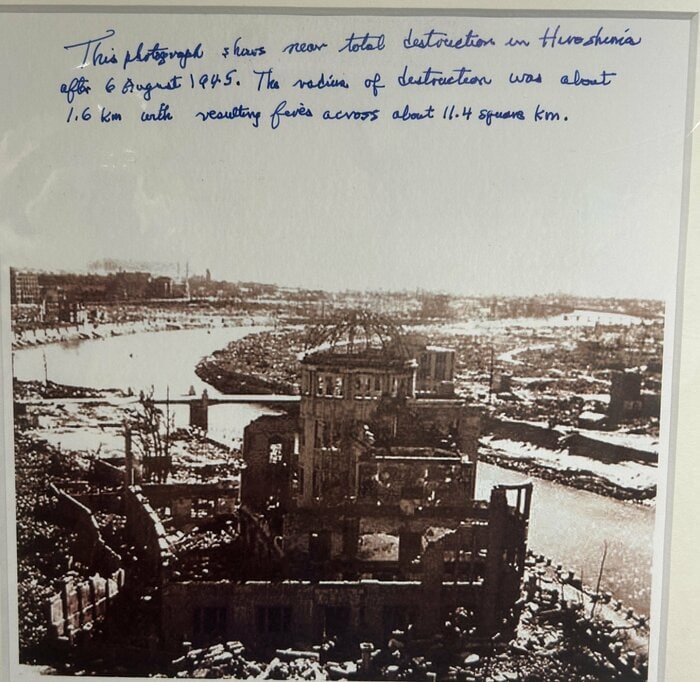 This photograph shows near total destruction in Hiroshima
after 6 August 1945. The radius of destruction was about
1.6 km with resulting fires across about 11.4 square km.